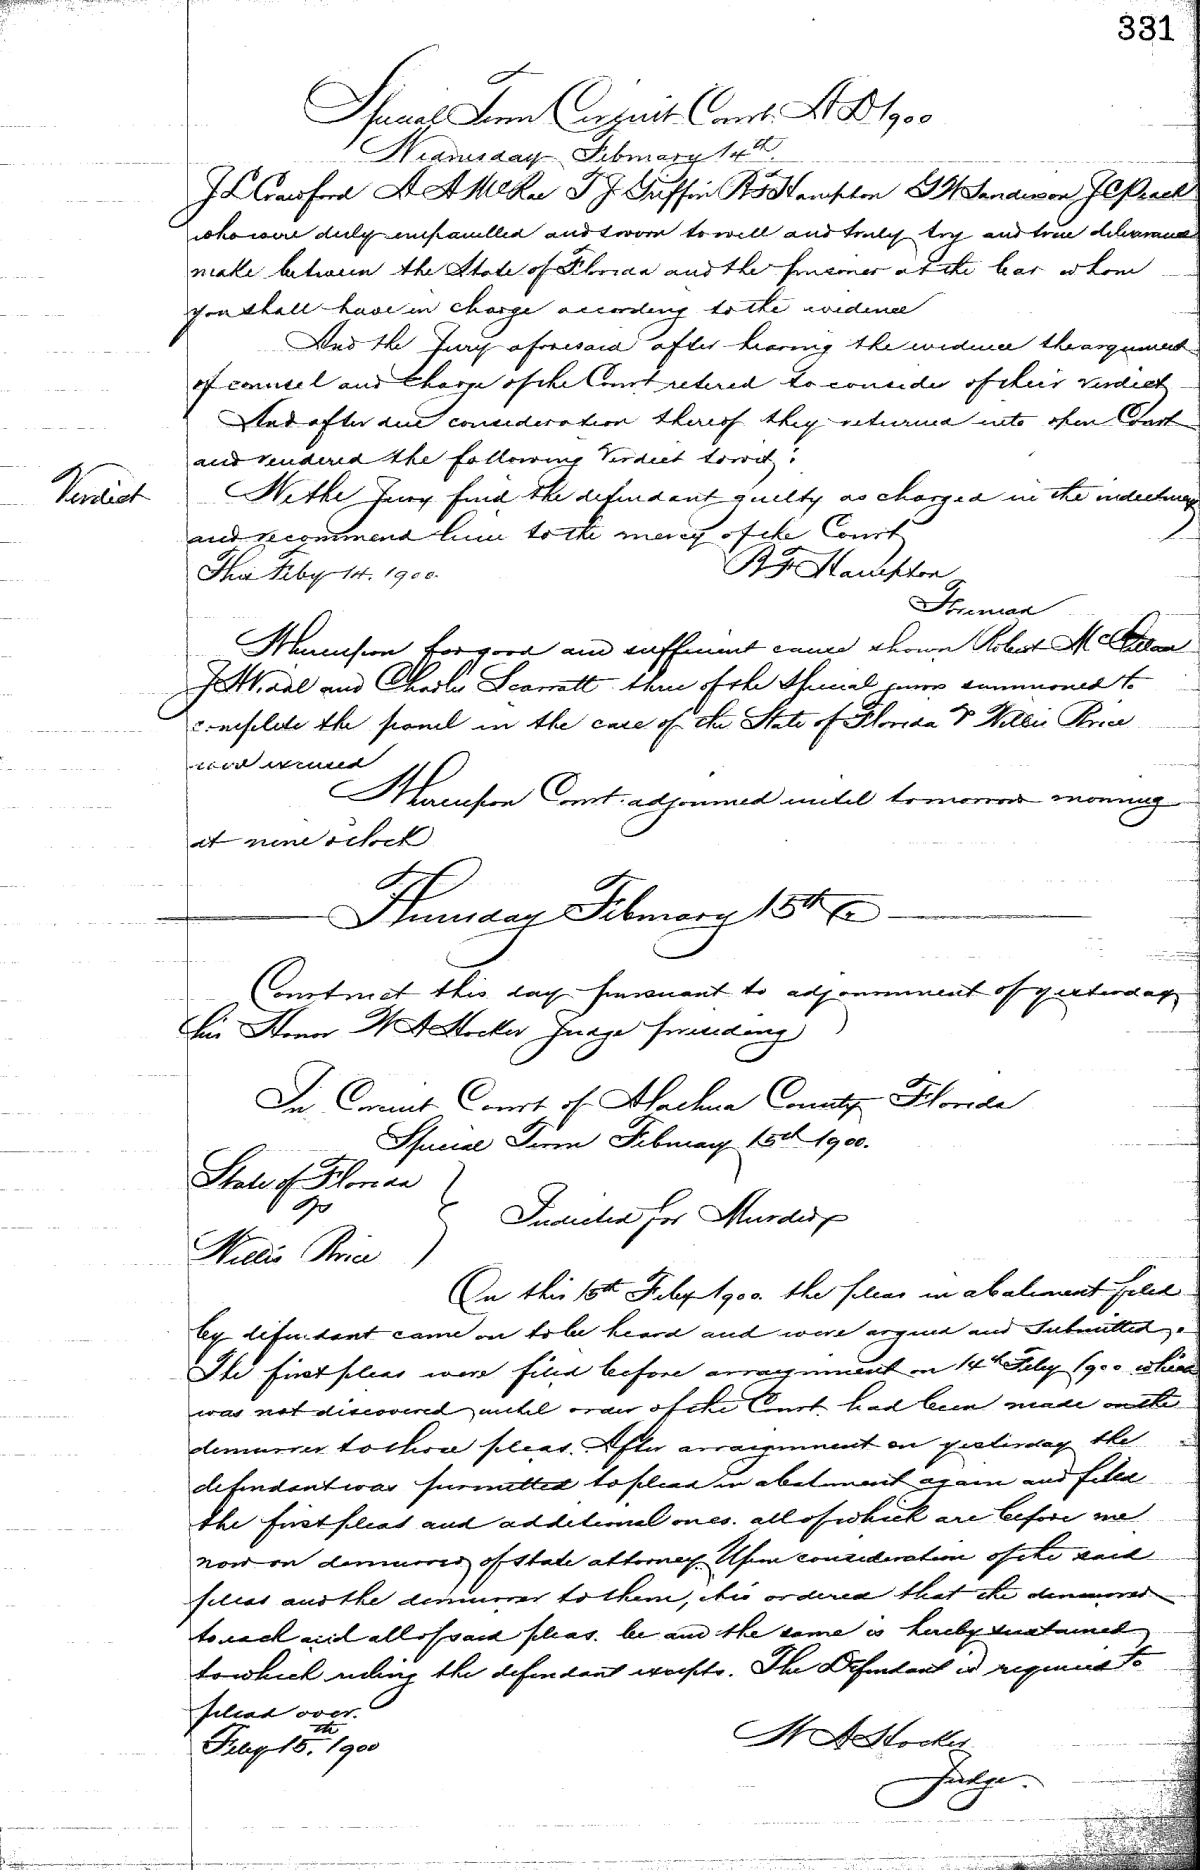 331
Special Term Circuit Court A D 1900
Wednesday February 14th.
J L Crawford A A McRae T J Griffin B F Hampton G W Sanderson J C
who were duly empanelled and sworn to well and truly try and true deliverance
make between the State of Florida and the prisoner at the bar whom
you shall have in charge according to the evidence
And the Jury aforesaid after hearing the evidence the argument
of counsel and charge of the Court retered to consider of their verdict
And after due consideration thereof they returned into open Court
and rendered the following Verdict towit:
Verdict
We the Jury find the defendant guilty as charged in the indictment
and recommend him to the mercy of the Court
This Feby 14. 1900.
B F Hampton
Foreman
Whereupon for good and sufficient cause shown Robert
and Charles Scarratt three of the special jurors summoned to
complete the panel in the case of the State of Florida v Willis Price
was excused
Whereupon Court adjourned until tomorrow morning
at nine oclock
Thursday February 15th
Court met this day pursuant to adjournment of yesterday
his Honor W A Hocker Judge presiding
In Circuit Court of Alachua County Florida
Special Term February 15th 1900.
State of Florida
vs
Indicted for Murder
Willis Price
On this 15th Feby 1900. the pleas in abatement filed
by defendant came on to be heard and were argued and submitted.
The first pleas were filed before arraignment on 14th Feby 1900 which
was not discovered until order of the Court had been made on the
demurrer to those pleas. After arraignment on yesterday the
defendant was permitted to plead in abatement again and filed
the first pleas and additional ones. all of which are before me
now on demurrer of state attorney. Upon consideration of the said
pleas and the demurrer to them, it is ordered that the demurrer
to each and all of said pleas. be and the same is hereby sustained
to which ruling the defendant excepts. The Defendant is required to
plead over.
Feby 15th. 1900
W A Hocker
Judge.